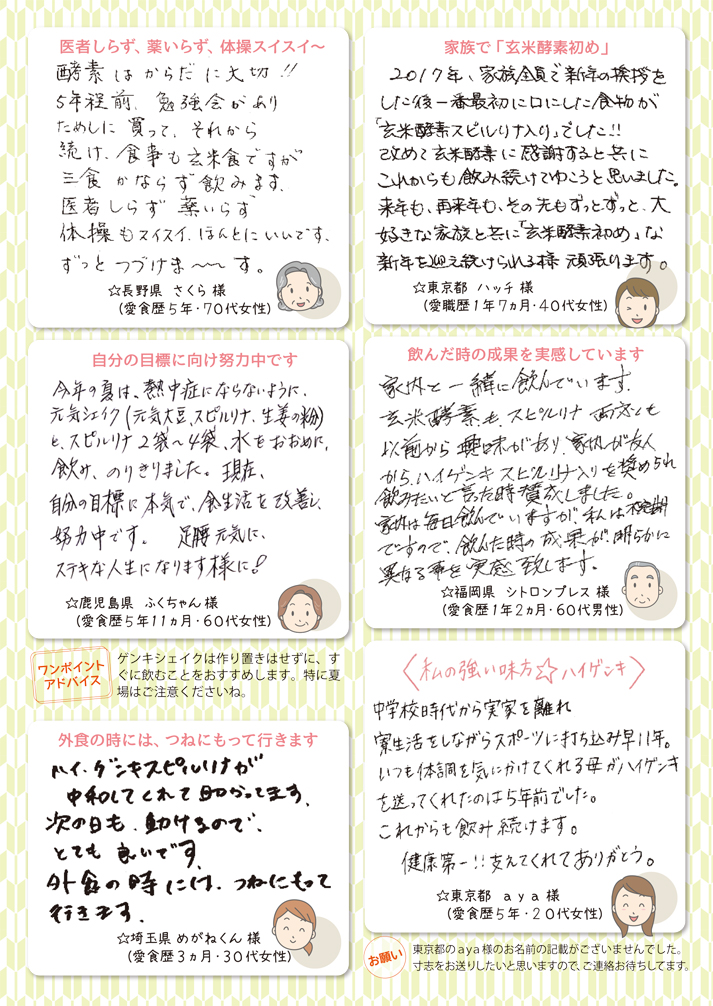 医者しらず、薬いらず、体操スイスイ～
酵素はからだに大切!!
5年程前、勉強会があり
ためしに買って、それから
続け、食事も玄米食ですが
三食かならず飲みます。
医者しらず薬いらず
体操もスイスイ、ほんとにいいです、
ずっとつづけま〜〜す。
☆長野県 さくら 様
(愛食歴5年・70代女性)
家族で「玄米酵素初め」
2017年、家族全員で新年の挨拶を
した後一番最初に口にした食物が
「玄米酵素スピルリナ入り」でした!!
改めて玄米酵素に感謝すると共に
これからも飲み続けてゆこうと思いました。
来年も、再来年も、その先もずっとずっと、大
好きな家族と共に「玄米酵素初め」な
新年を迎え続けられる様 頑張ります。
☆東京都 ハッチ 様
(愛職歴1年7ヵ月・40代女性)
自分の目標に向け努力中です
今年の夏は、熱中症にならないように、
元気シェイク(元気大豆、スピルリナ、生姜の粉)
と、スピルリナ2袋〜4袋、水をおおめに、
飲み、のりきりました。現在、
自分の目標に本気で、食生活を改善し、
努力中です。 足腰元気に、
ステキな人生になります様に!
☆鹿児島県 ふくちゃん 様
(愛食歴5年11ヵ月・60代女性)
飲んだ時の成果を実感しています
家内と一緒に飲んでいます。
玄米酵素も、スピルリナ 両方とも
以前から興味があり、家内が友人
から、ハイゲンキスピルリナ入りを奨められ
飲みたいと言った時賛成しました。
家内は毎日飲んでいますが、私は不定期
ですので、飲んだ時の成果が明らかに
異なる事を実感致します。
☆福岡県 シトロンプレス 様
(愛食歴1年2ヵ月・60代男性)
ワンポイント
アドバイス
ゲンキシェイクは作り置きはせずに、す
ぐに飲むことをおすすめします。特に夏
場はご注意くださいね。
外食の時には、つねにもって行きます
ハイ・ゲンキスピルリナが
中和してくれて助かってます、
次の日も、動けるので、
とても良いです
外食の時には、つねにもって
行きます。
☆埼玉県 めがねくん 様
(愛食歴3ヵ月・30代女性)
〈私の強い味方☆ハイゲンキ〉
中学校時代から実家を離れ
寮生活をしながらスポーツに打ち込み早11年。
いつも体調を気にかけてくれる母がハイゲンキ
を送ってくれたのは5年前でした。
これからも飲み続けます。
健康第一!!支えてくれてありがとう。
☆東京都 aya 様
(愛食歴5年・20代女性)
お願い
東京都のaya様のお名前の記載がございませんでした。
寸志をお送りしたいと思いますので、ご連絡お待ちしてます。